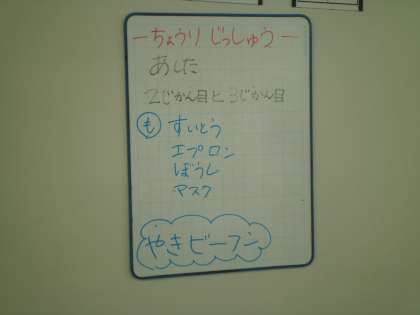 ーちょうりじっしゅうー
あした
2じかん目と3じかん目
も すいとう
エプロン
ぼうし
マスク
やきビーフン